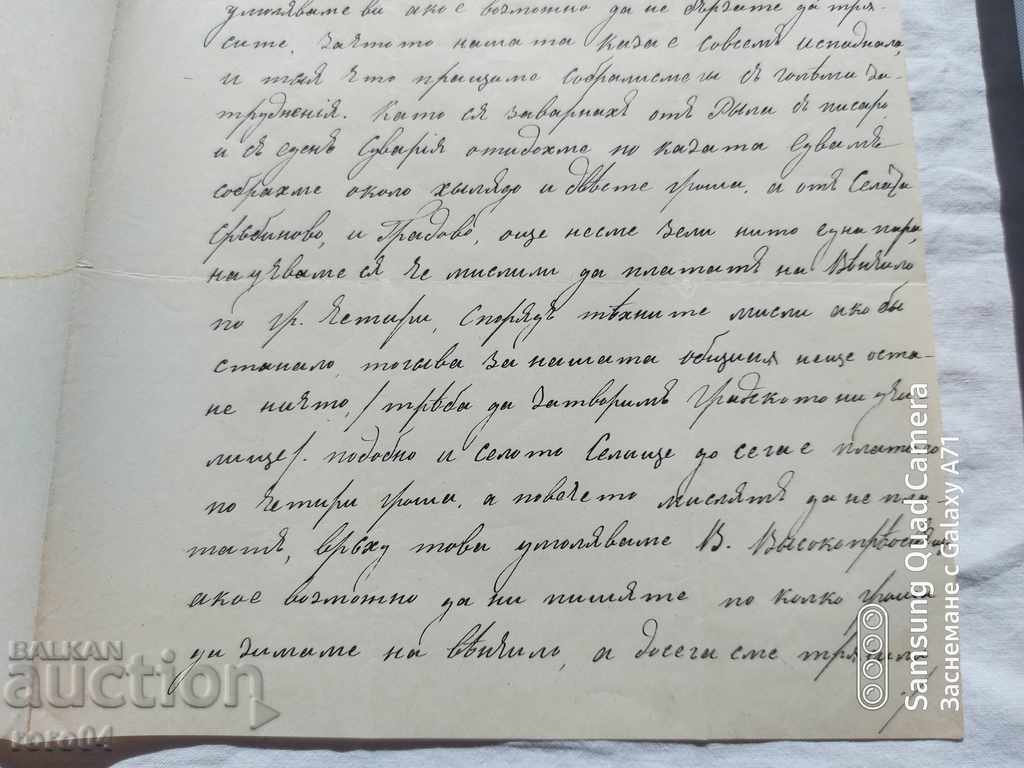 умоляваме ви ако е возможно да не бързате да тря-
сите. Заятото нашата каза е совсемъ испаднала,
и тыя что пращаме собралисмегы съ големи за-
трудненія. Като ся заварнахъ отъ Рыли съ писаро
и съ еденъ Суварія отидохме по казата едвамъ
собрахме около хылядо и двѣсте гроша, а отъ Села
Сръбиново, и Градово, още несме зели нито една пара,
научваме ся че мислили да платятъ на Вѣнчило
по гр. четири, спорядъ тѣхните мисли ако бы
станало, тогыва за нашата общиня неще оста-
не ништо, /трѣба да затворимъ градското ни учи
лище/. подобно и селото Селище до сега е платило
по четири гроша, а повечето мислятъ да не пла
татъ, връхъ това умоляваме В. Высокопрѣосв.
ако е возможно да ни пишяте по колко гроша
да зимаме на вѣнчило, а досега сме
BALKAN
auction
roro04
Samsung Quad Camera
Заснемане с Galaxy A71